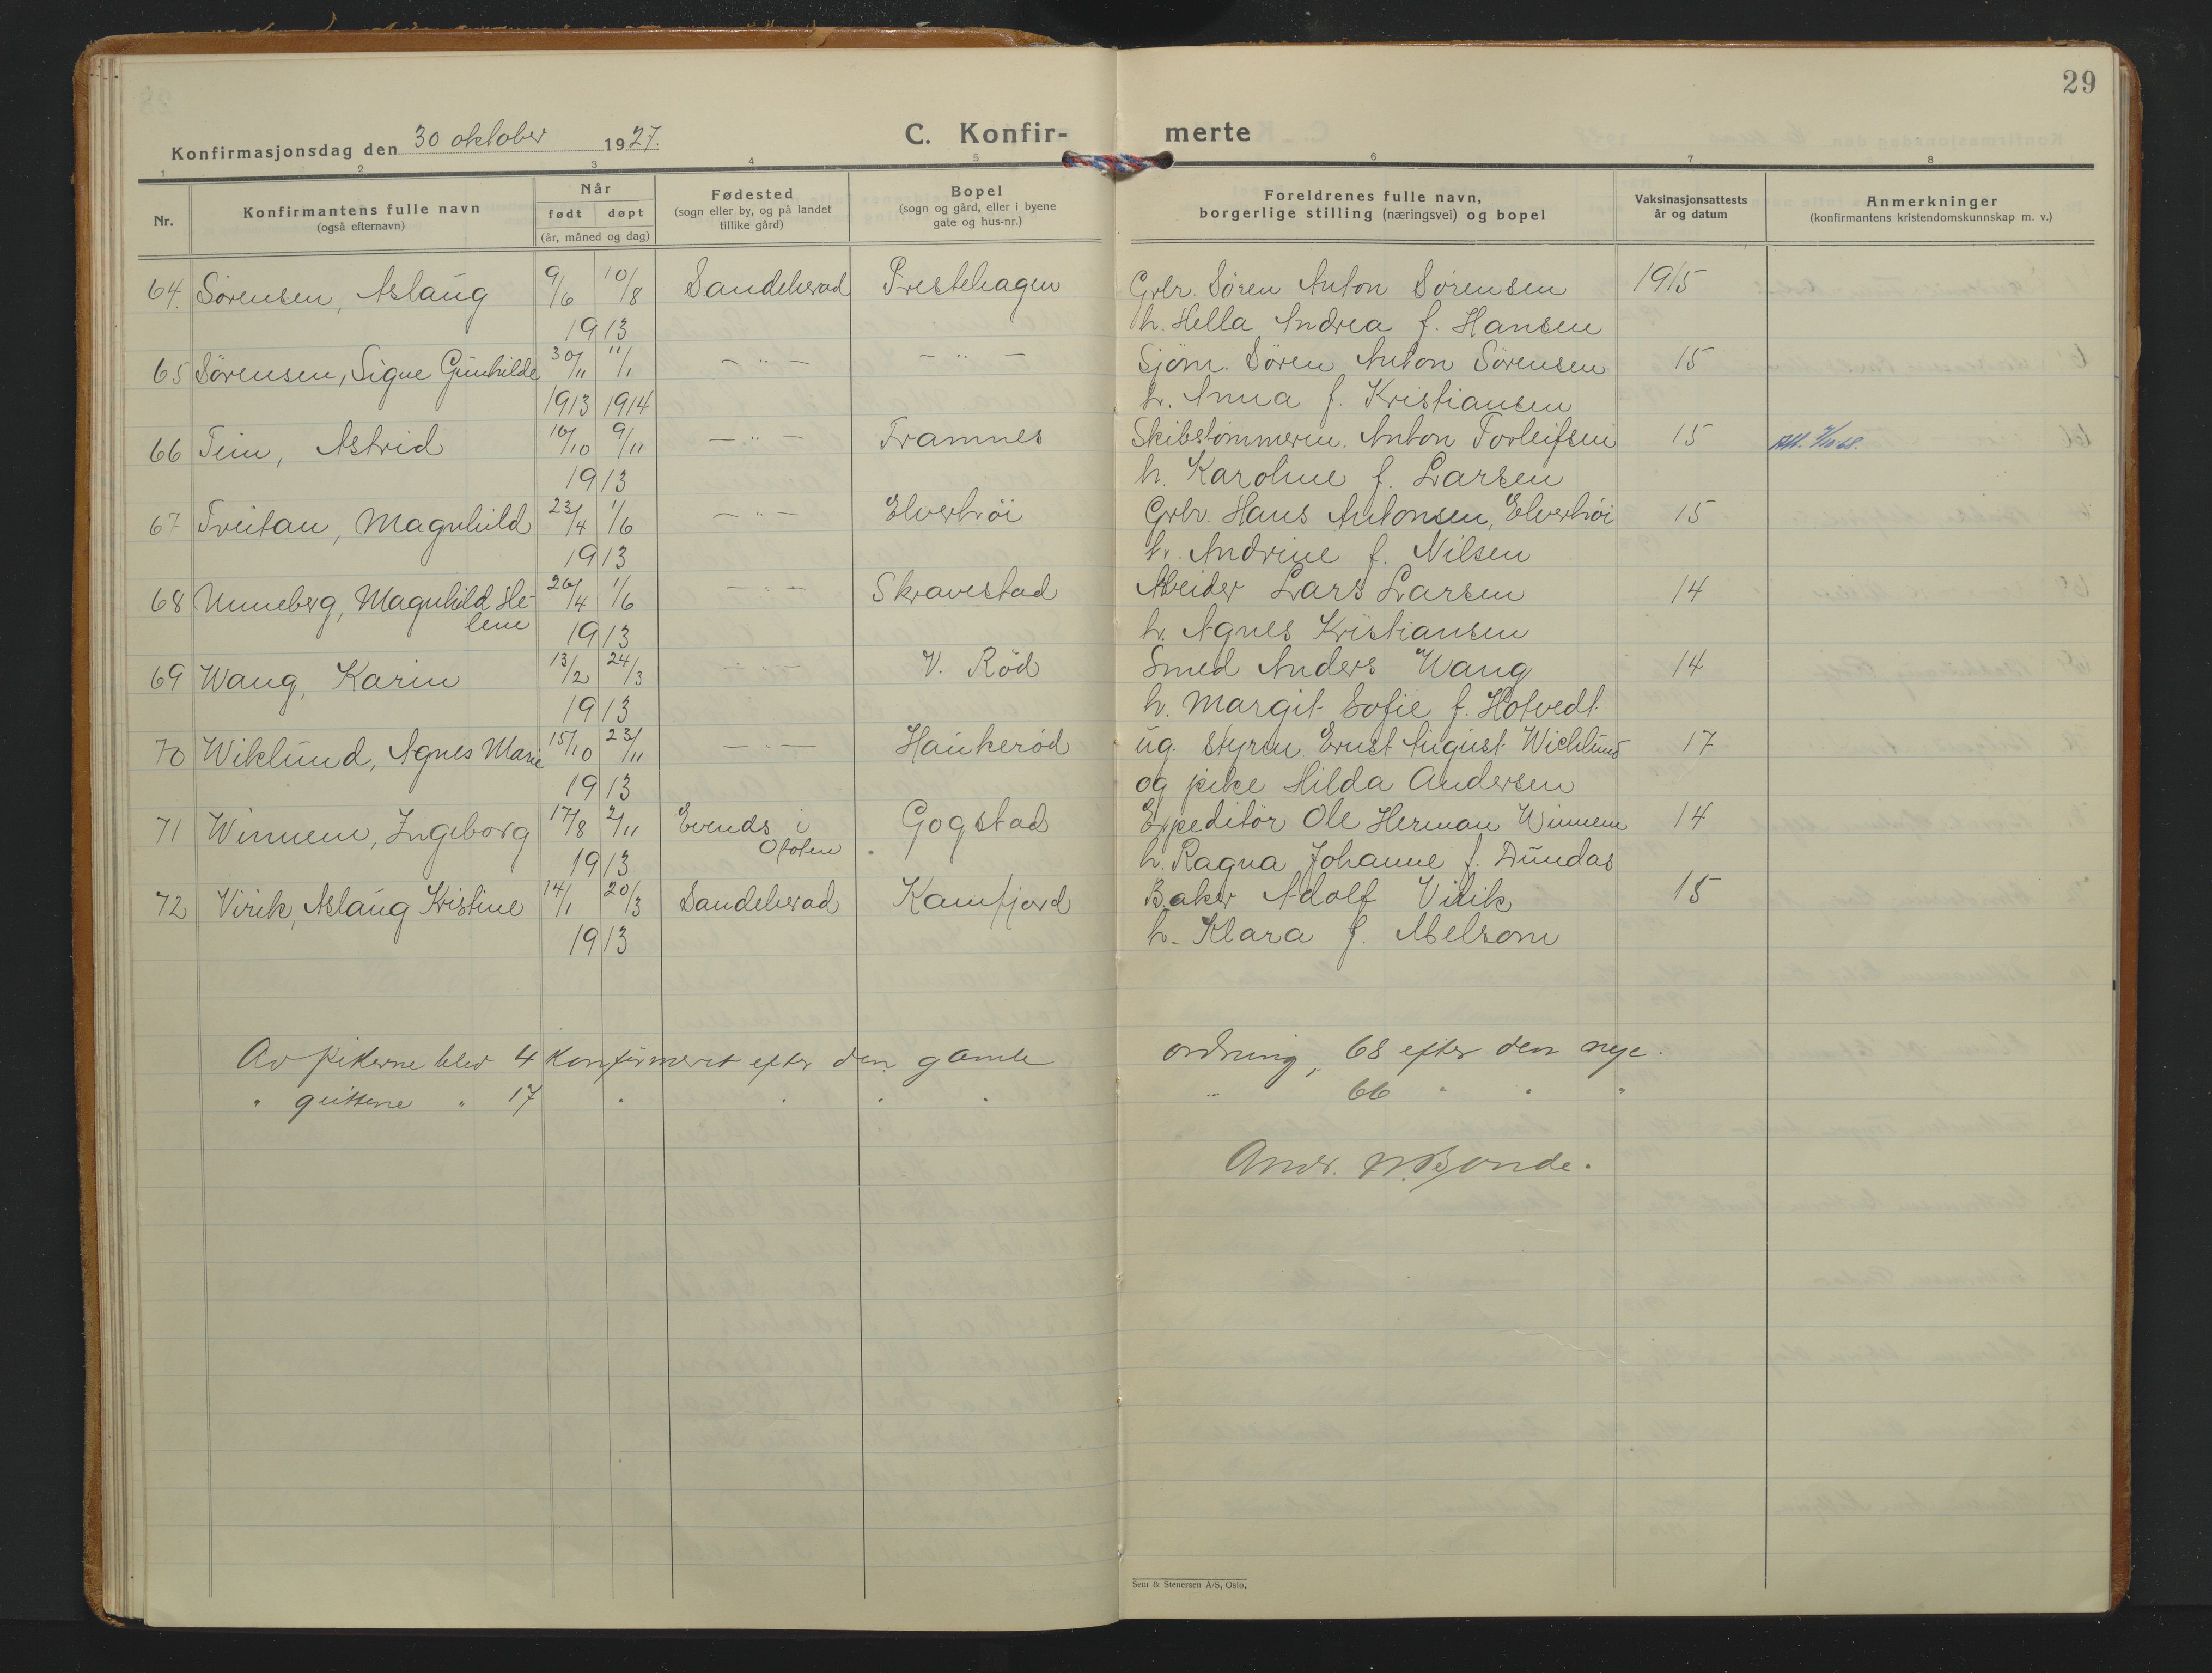 29
Konfirmasjonsdag den 30 oktober 1927.
C. Konfir- merte
1 2 3 4 5 6 7 8
Nr.
Konfirmantens fulle navn
(også efternavn)
Når
født døpt
(år, måned og dag)
Fødested
(sogn eller by, og på landet
tillike gård)
Bopel
(sogn og gård, eller i byene
gate og hus-nr.)
Foreldrenes fulle navn,
borgerlige stilling (næringsvei) og bopel
Vaksinasjonsattests
år og datum
Anmerkninger
(konfirmantens kristendomskunnskap m. v.)
64. Sørensen, Aslaug 9/6 10/8 Sandeherad Prestehagen Grbr. Søren Anton Sørensen 1915
1913 h. Hella Andrea f. Hansen
65 Sørensen, Signe Gunhilde 30/11 11/1 - " - - " - Sjøm. Søren Anton Sørensen 15
1913 1914 h. Anna f. Kristiansen
66 Tein, Astrid 10/10 9/11 - " - Framnes Skibstømmerm. Anton Torleifsen 15
1913 h. Karoline f. Larsen
67 Treitau, Magnhild 23/4 1/6 - " - Elverhöi Grbr. Hans Antonsen, Elverhöi 15
1913 h. Andrine f. Nilsen
68 Unneberg, Magnhild He- 26/4 1/6 - " - Skravestad Abeider Lars Larsen 14
lene 1913 h. Agnes Kristiansen
69 Wang, Karin 13/2 24/3 - " - V. Rød Smed Anders Wang 14
1913 h. Margit Sofie f. Hotvedt
70 Wiklund, Agnes Marie 15/10 23/11 - " - Haukerød ug. styrm. Ernst August Wichlund 17
1913 og pike Hilda Andersen
71 Winnem, Ingeborg 17/8 2/11 i Gogstad Expeditør Ole Herman Winnem 14
1913 h. Ragna Johanne f. Dundas
72 Virik, Aslaug Kristine 14/1 20/3 Sandeherad Kamfjord Baker Adolf Virik 15
1913 h. Klara f. Abelsom
Av pikerne blev 4 konfirmeret efter den gamle ordning, 68 efter den nye.
" guttene " 17 " " " " " 66 " " "
Andr. M. Bonde.
Sem & Stenersen A/S, Oslo,